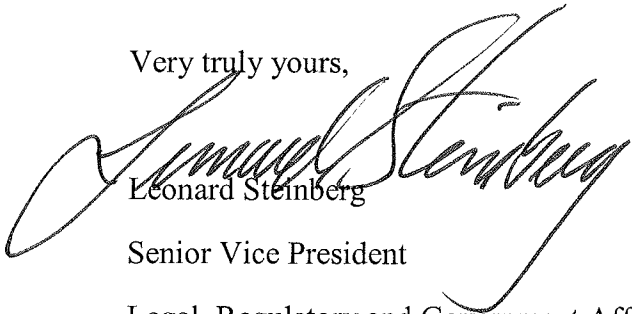 Very truly yours,
Leonard Steinberg
Leonard Steinberg
Senior Vice President
Legal, Regulatory and Government Aff